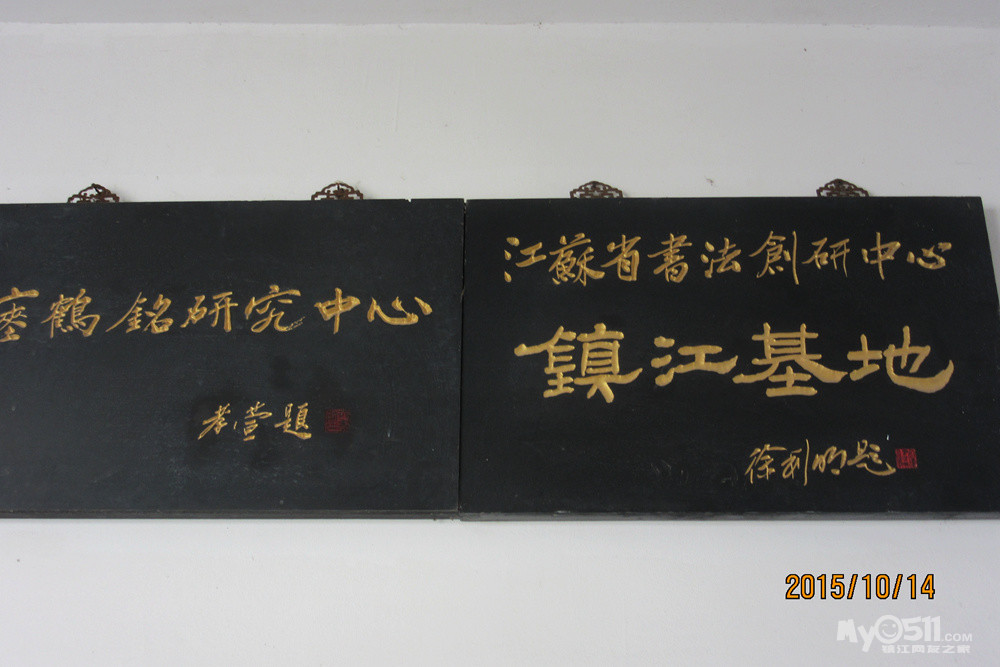 瘞鶴銘研究中心
孝萱題
江蘇省書法創研中心
鎮江基地
徐利明題
2015/10/14
My0511.COM
镇江网友之家